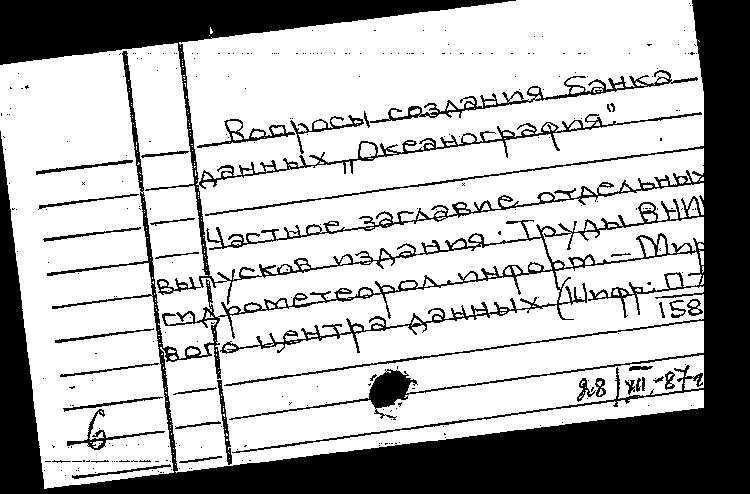 Вопросы создания банка
данных „Океанография".
Частное заглавие отдельных
выпусков издания: Труды ВНИИ
гидрометеорол. информ. – Мир
вого центра данных (Шифр: П-
158
28/XII-87г
6